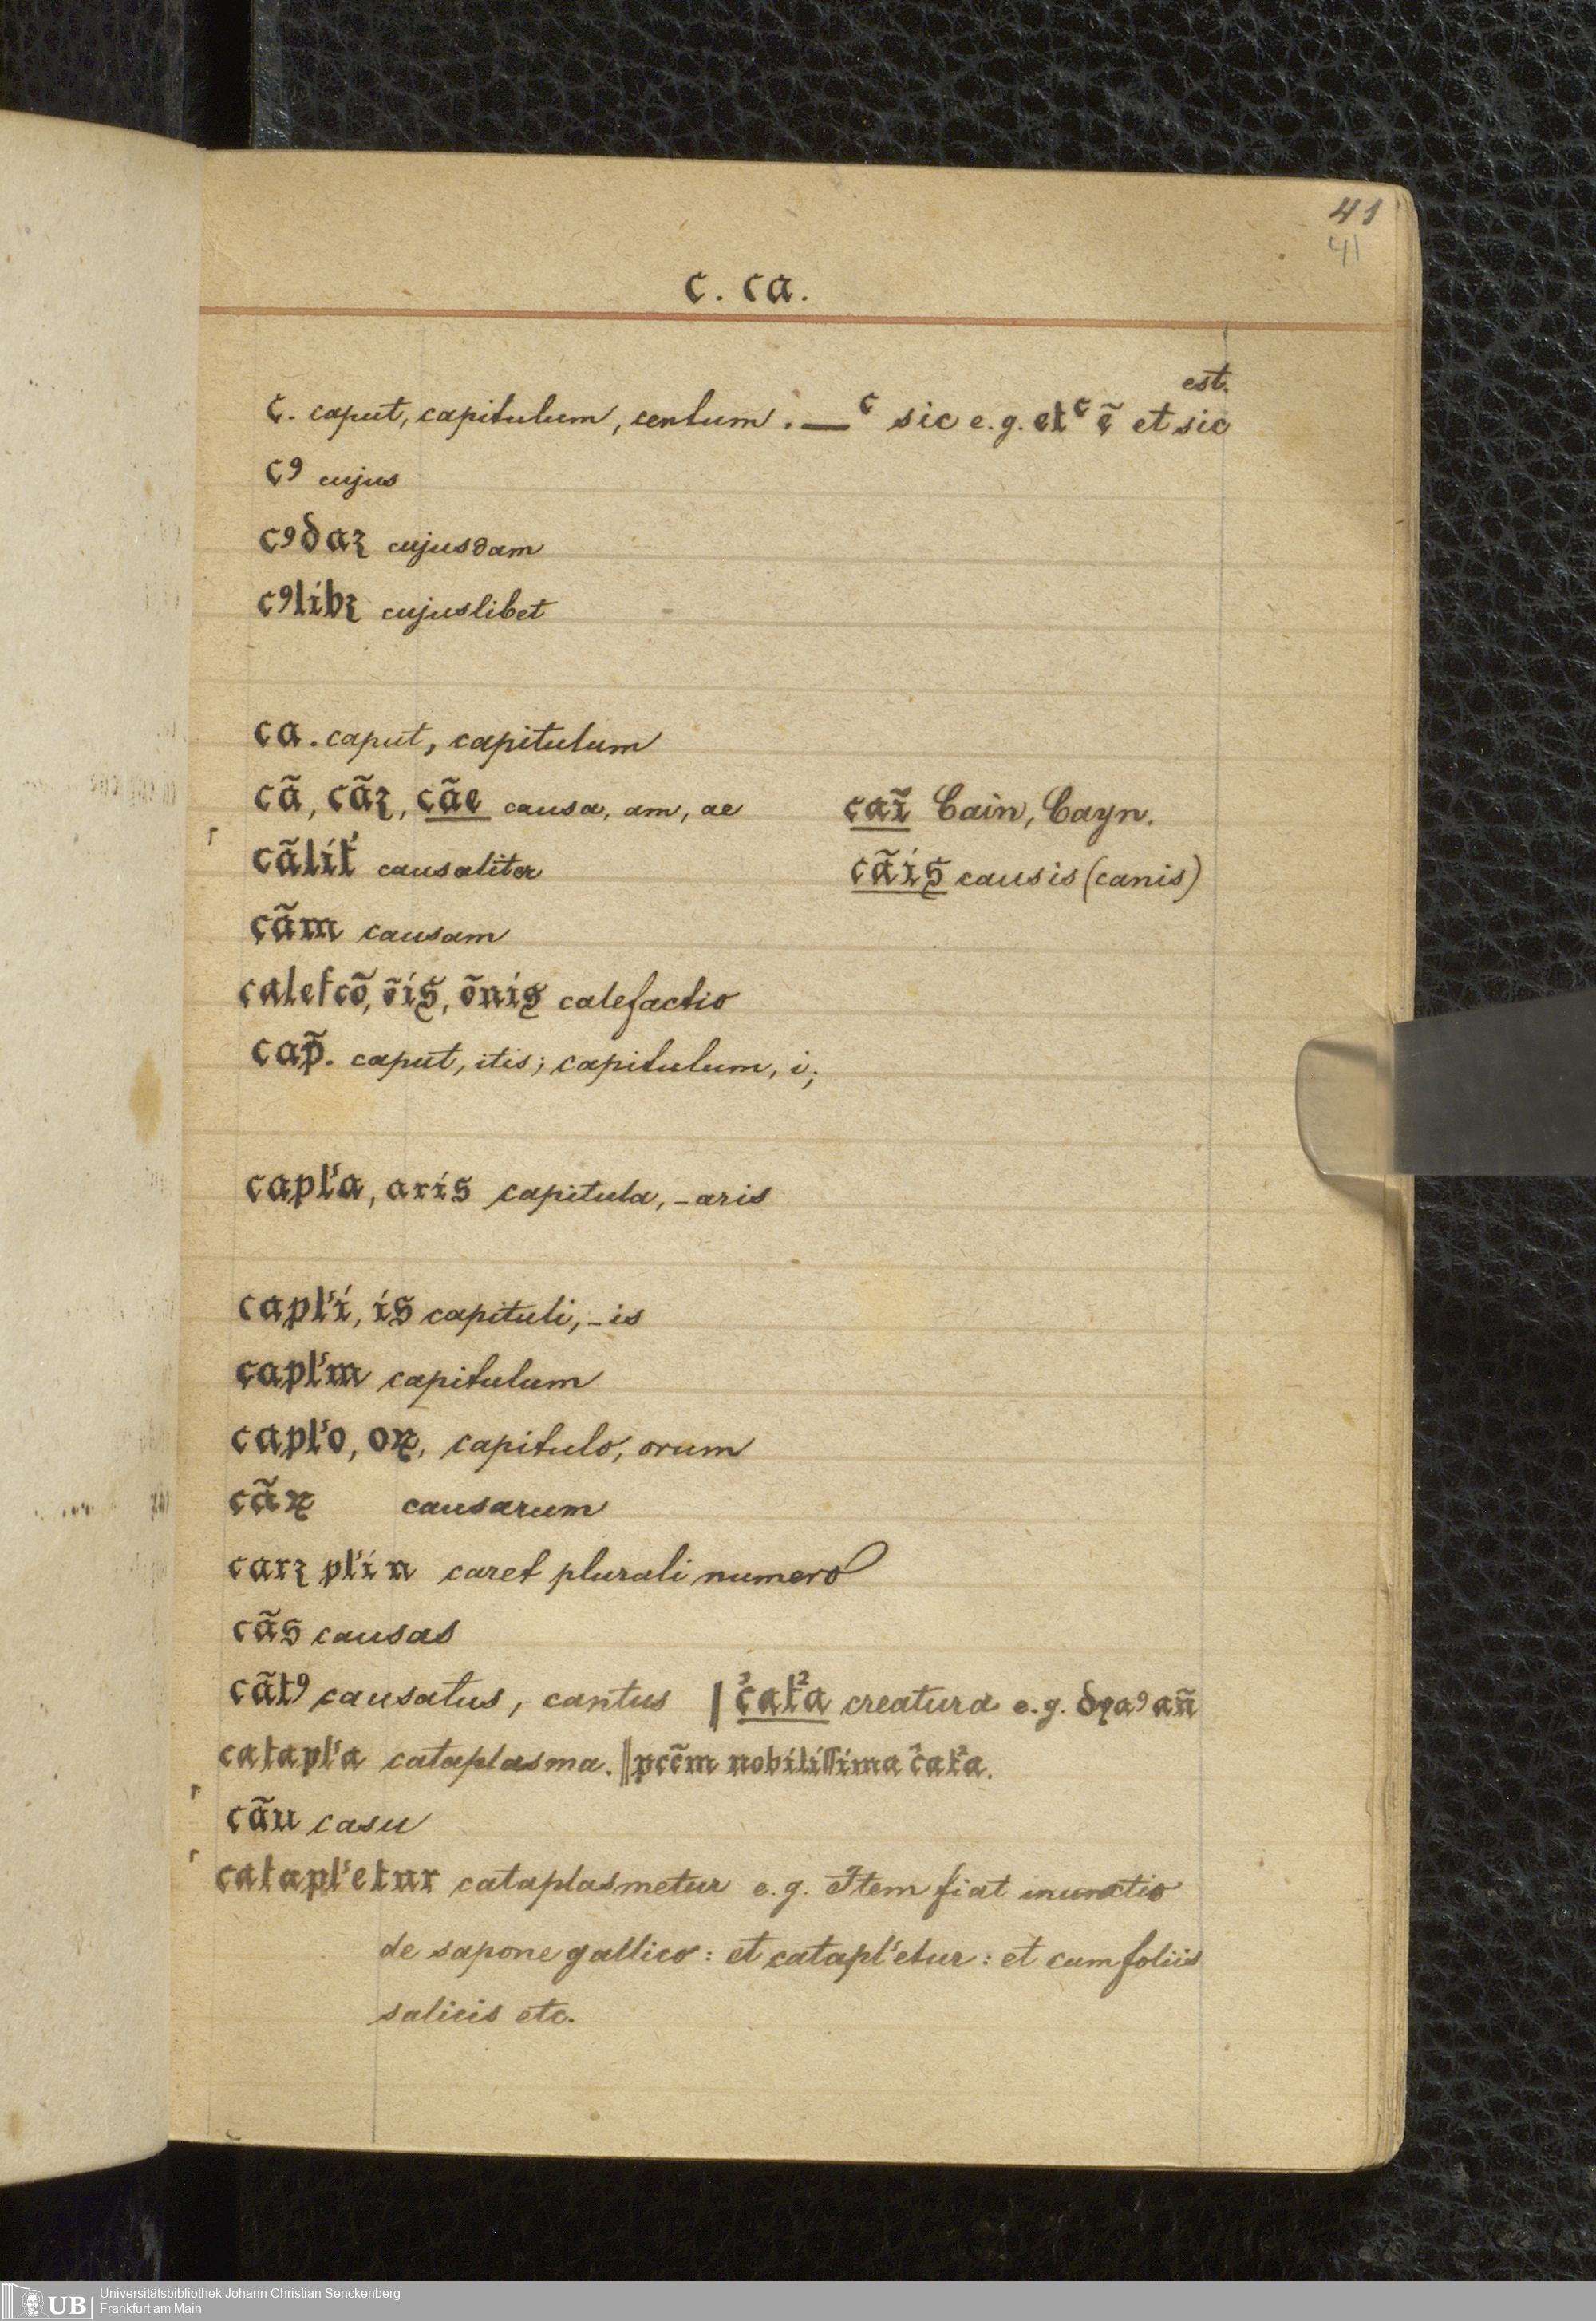 41
41
c. ca.
est.
c. caput, capitulum, centum. — ᶜ sic e.g. etᶜ ẽ et sic
cꝰ cujus
cꝰdaꝫ cujusdam
cꝰlibꝫ cujuslibet
ca. caput, capitulum
cã, cãꝫ, cãe causa, am, ae caĩ Cain, Cayn.
cãlit᷑ causaliter cãis causis (canis)
cãm causam
calefcõ, õis, õnis calefactio
cap̃. caput, itis; capitulum, i;
capl'a, aris capitula, -aris
capl'i, is capituli, -is
capl'm capitulum
capl'o, oꝝ, capitulo, orum
cãꝝ causarum
carꝫ pl'i n caret plurali numero
cãs causas
cãtꝰ causatus, cantus | c²at²a creatura e.g. aꝰ añ
catapl'a cataplasma. || pcẽm nobiliſſima c²at²a.
cãu casu
catapl'etur cataplasmetur e.g. Item fiat inunctio
de sapone gallico: et catapl'etur: et cum foliis
salicis etc.
UB
Universitätsbibliothek Johann Christian Senckenberg
Frankfurt am Main